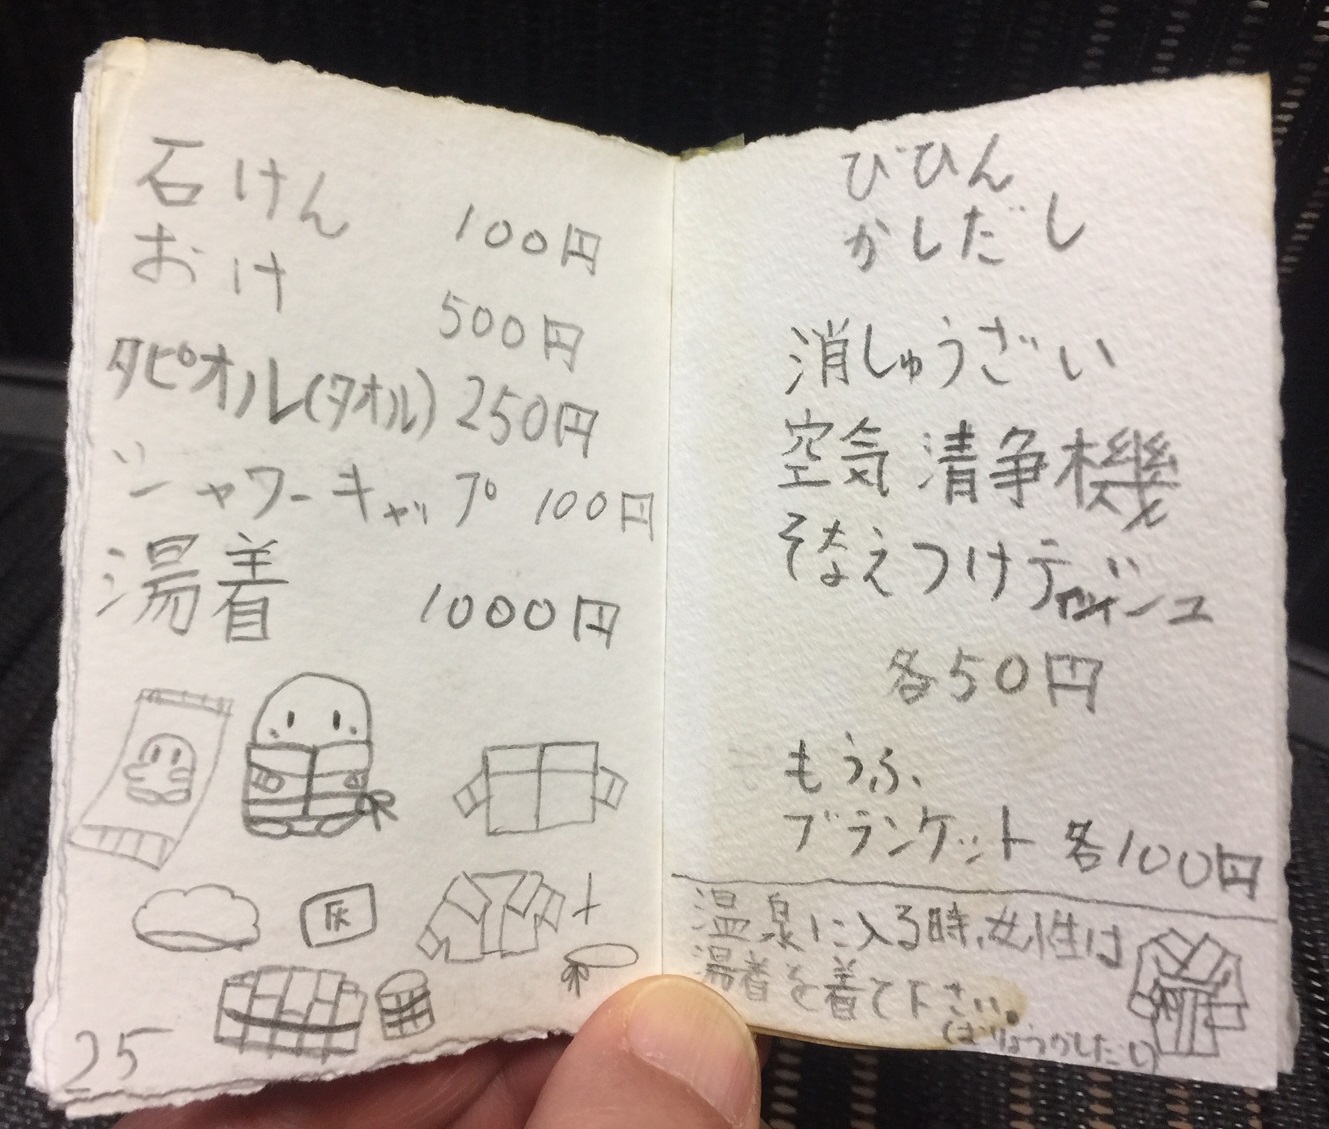 石けん 100円
おけ 500円
タピオル(タオル) 250円
シャワーキャップ 100円
湯着 1000円
25
びひん
かしだし
消しゅうざい
空気清争機
そなえつけティッシュ
各50円
もうふ、
ブランケット 各100円
温泉に入る時、女性は
湯着を着て下さい。